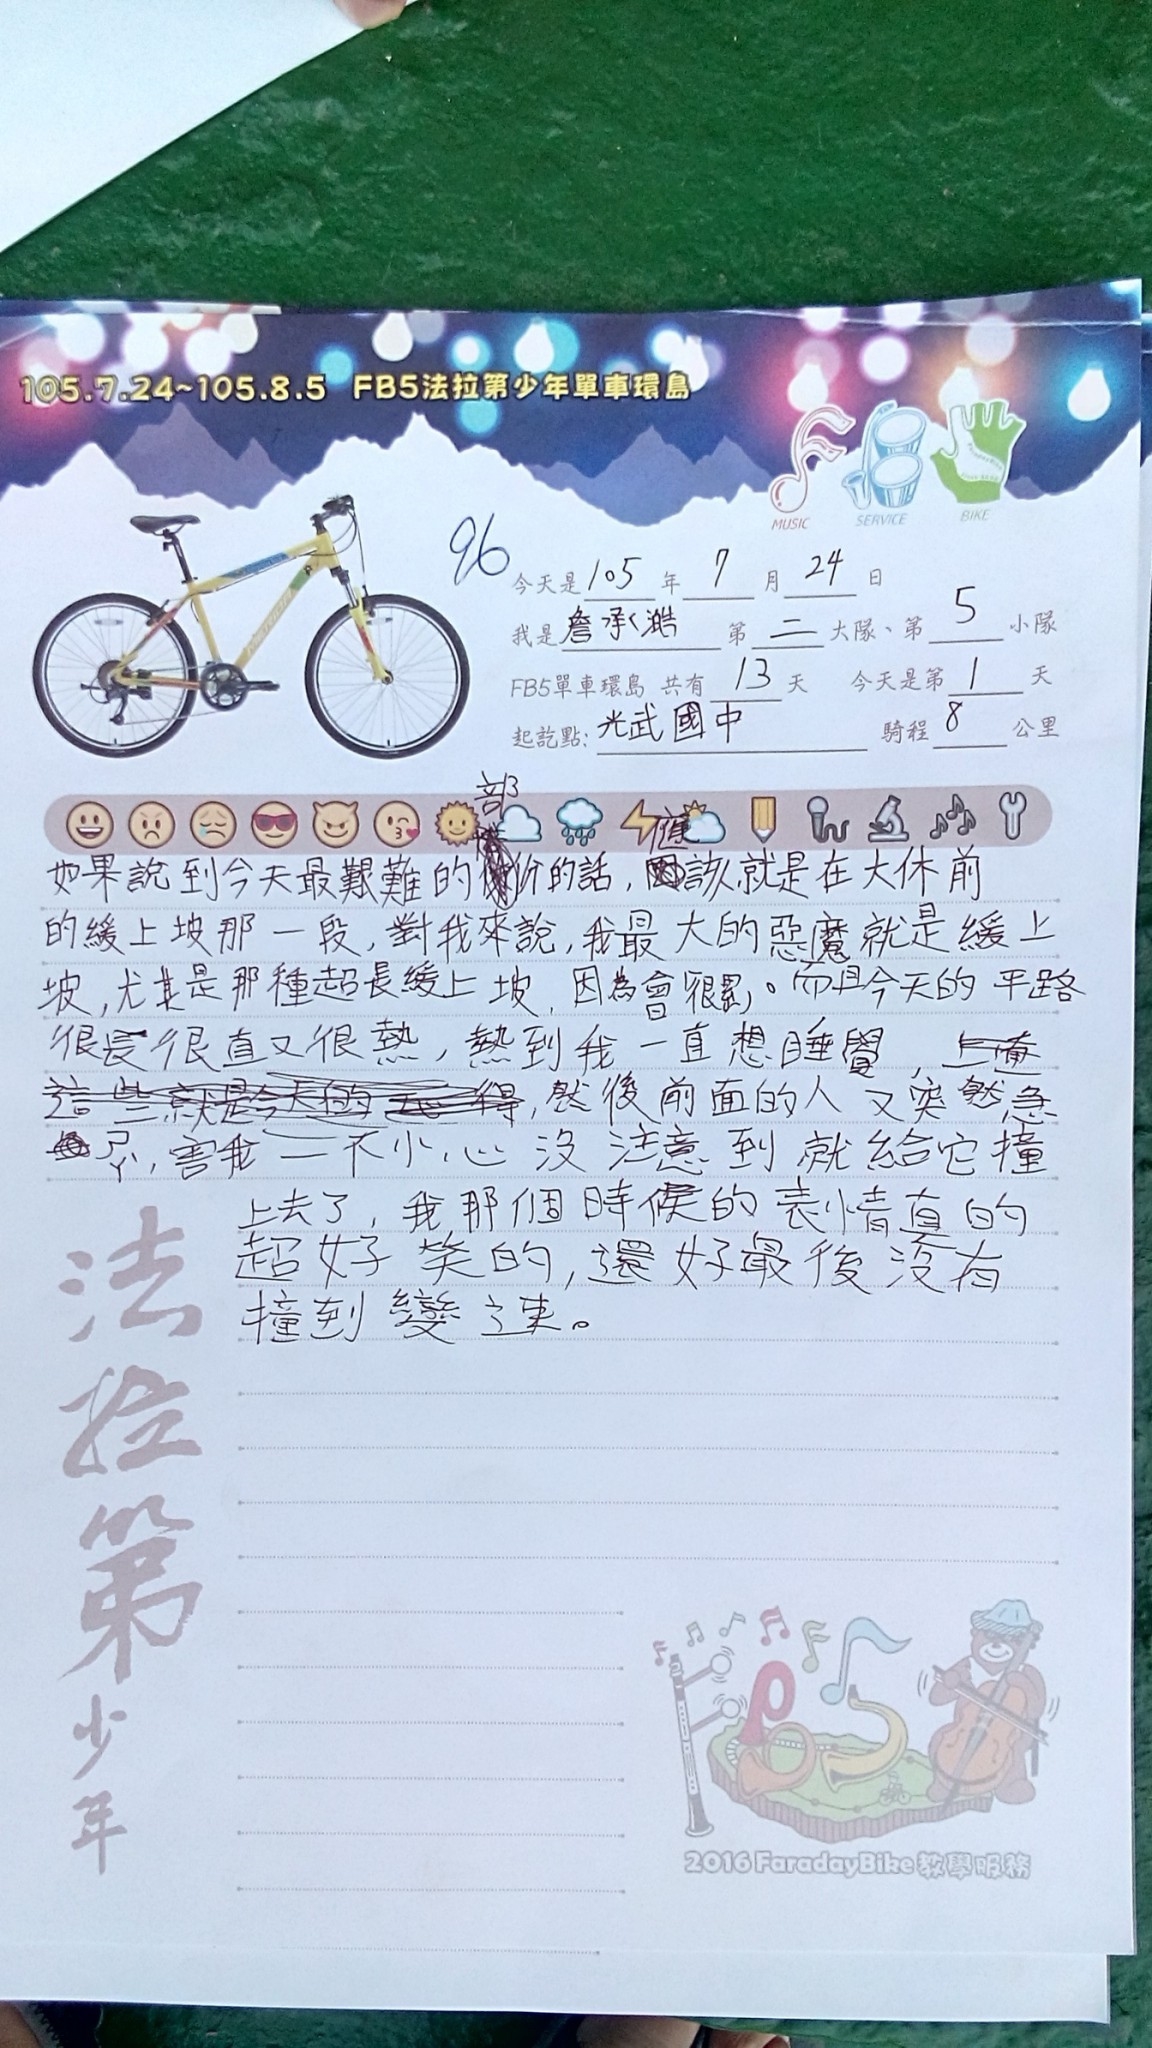 105.7.24~105.8.5 FB5法拉第少年單車環島
MUSIC SERVICE BIKE
96
今天是 105 年 7 月 24 日
我是 詹承澔 第 二 大隊、第 5 小隊
FB5單車環島 共有 13 天 今天是第 1 天
起訖點: 光武國中 騎程 8 公里
如果說到今天最艱難的部份的話,應該就是在大休前
的緩上坡那一段,對我來說,我最大的惡魔就是緩上
坡,尤其是那種超長緩上坡,因為會很累。而且今天的平路
很長很直又很熱,熱到我一直想睡覺,
然後前面的人又突然急
ㄕㄚ,害我一不小心沒注意到就給它撞
上去了,我那個時候的表情真的
超好笑的,還好最後沒有
撞到變速。
法拉第少年
2016 FaradayBike 教學服務